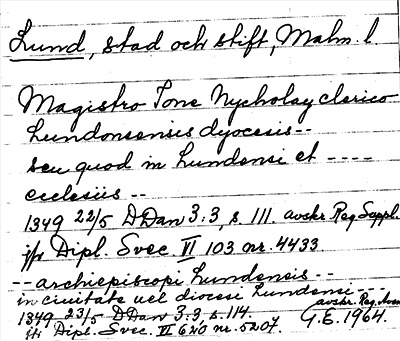 Lund, stad och stift, Malm. l.
Magistro Tone Nycholay clerico
Lundonensis dyocesis--
seu quod in Lundensi et ----
ecclesiis --
1349 22/5 DDan 3:3, s. 111. avskr. Reg. Suppl.
jfr Dipl. Svec. VI 103 nr. 4433.
-- archiepiscopi Lundensis --
in ciuitate uel diocesi Lundensi ---
1349 23/5 DDan 3:3, s. 114. avskr. Reg. Aven
jfr Dipl. Svec. VI 620 nr. 5207. G.E. 1964.